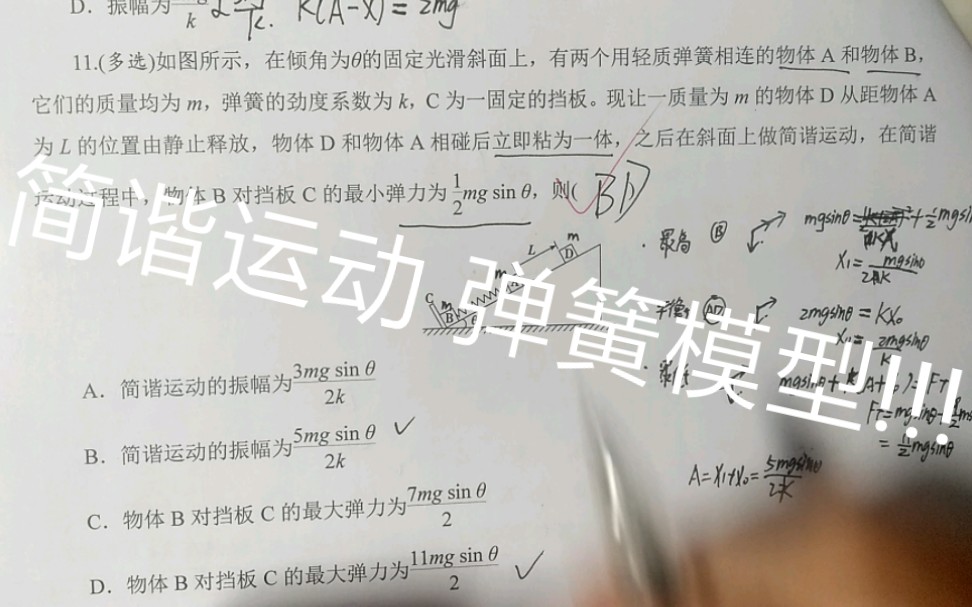 D. 振幅为 k K(A-X)=2mg
11.(多选)如图所示，在倾角为θ的固定光滑斜面上，有两个用轻质弹簧相连的物体 A 和物体 B，
它们的质量均为 m，弹簧的劲度系数为 k，C 为一固定的挡板。现让一质量为 m 的物体 D 从距物体 A
为 L 的位置由静止释放，物体 D 和物体 A 相碰后立即粘为一体，之后在斜面上做简谐运动，在简谐
运动过程中，物体 B 对挡板 C 的最小弹力为 1/2 mg sin θ，则( BD )
简谐运动 弹簧模型!!!
最高 B
mgsinθ= +1/2 mgsin
X₁= mgsinθ/2k
L
m
D
m
A
C
m
B
θ
平衡 AD
2mgsinθ = KX₀
X₀= 2mgsinθ/K
A. 简谐运动的振幅为 3mg sin θ/2k
B. 简谐运动的振幅为 5mg sin θ/2k ✓
= 11/2 mgsinθ
A=X₁+X₀= 5mgsinθ/2K
C. 物体 B 对挡板 C 的最大弹力为 7mg sin θ/2
D. 物体 B 对挡板 C 的最大弹力为 11mg sin θ/2 ✓